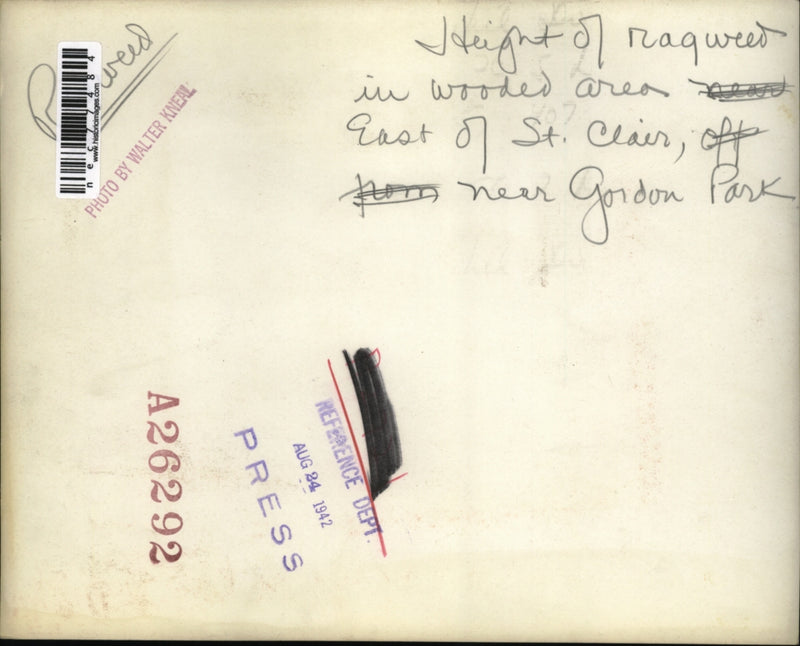 Height of ragweed
in wooded area near
East of St. Clair, off
from near Gordon Park
Ragweed
www.historicimages.com
nec77484
PHOTO BY WALTER KNEAL
A26292
PRESS
AUG 24 1942
REFERENCE DEPT.